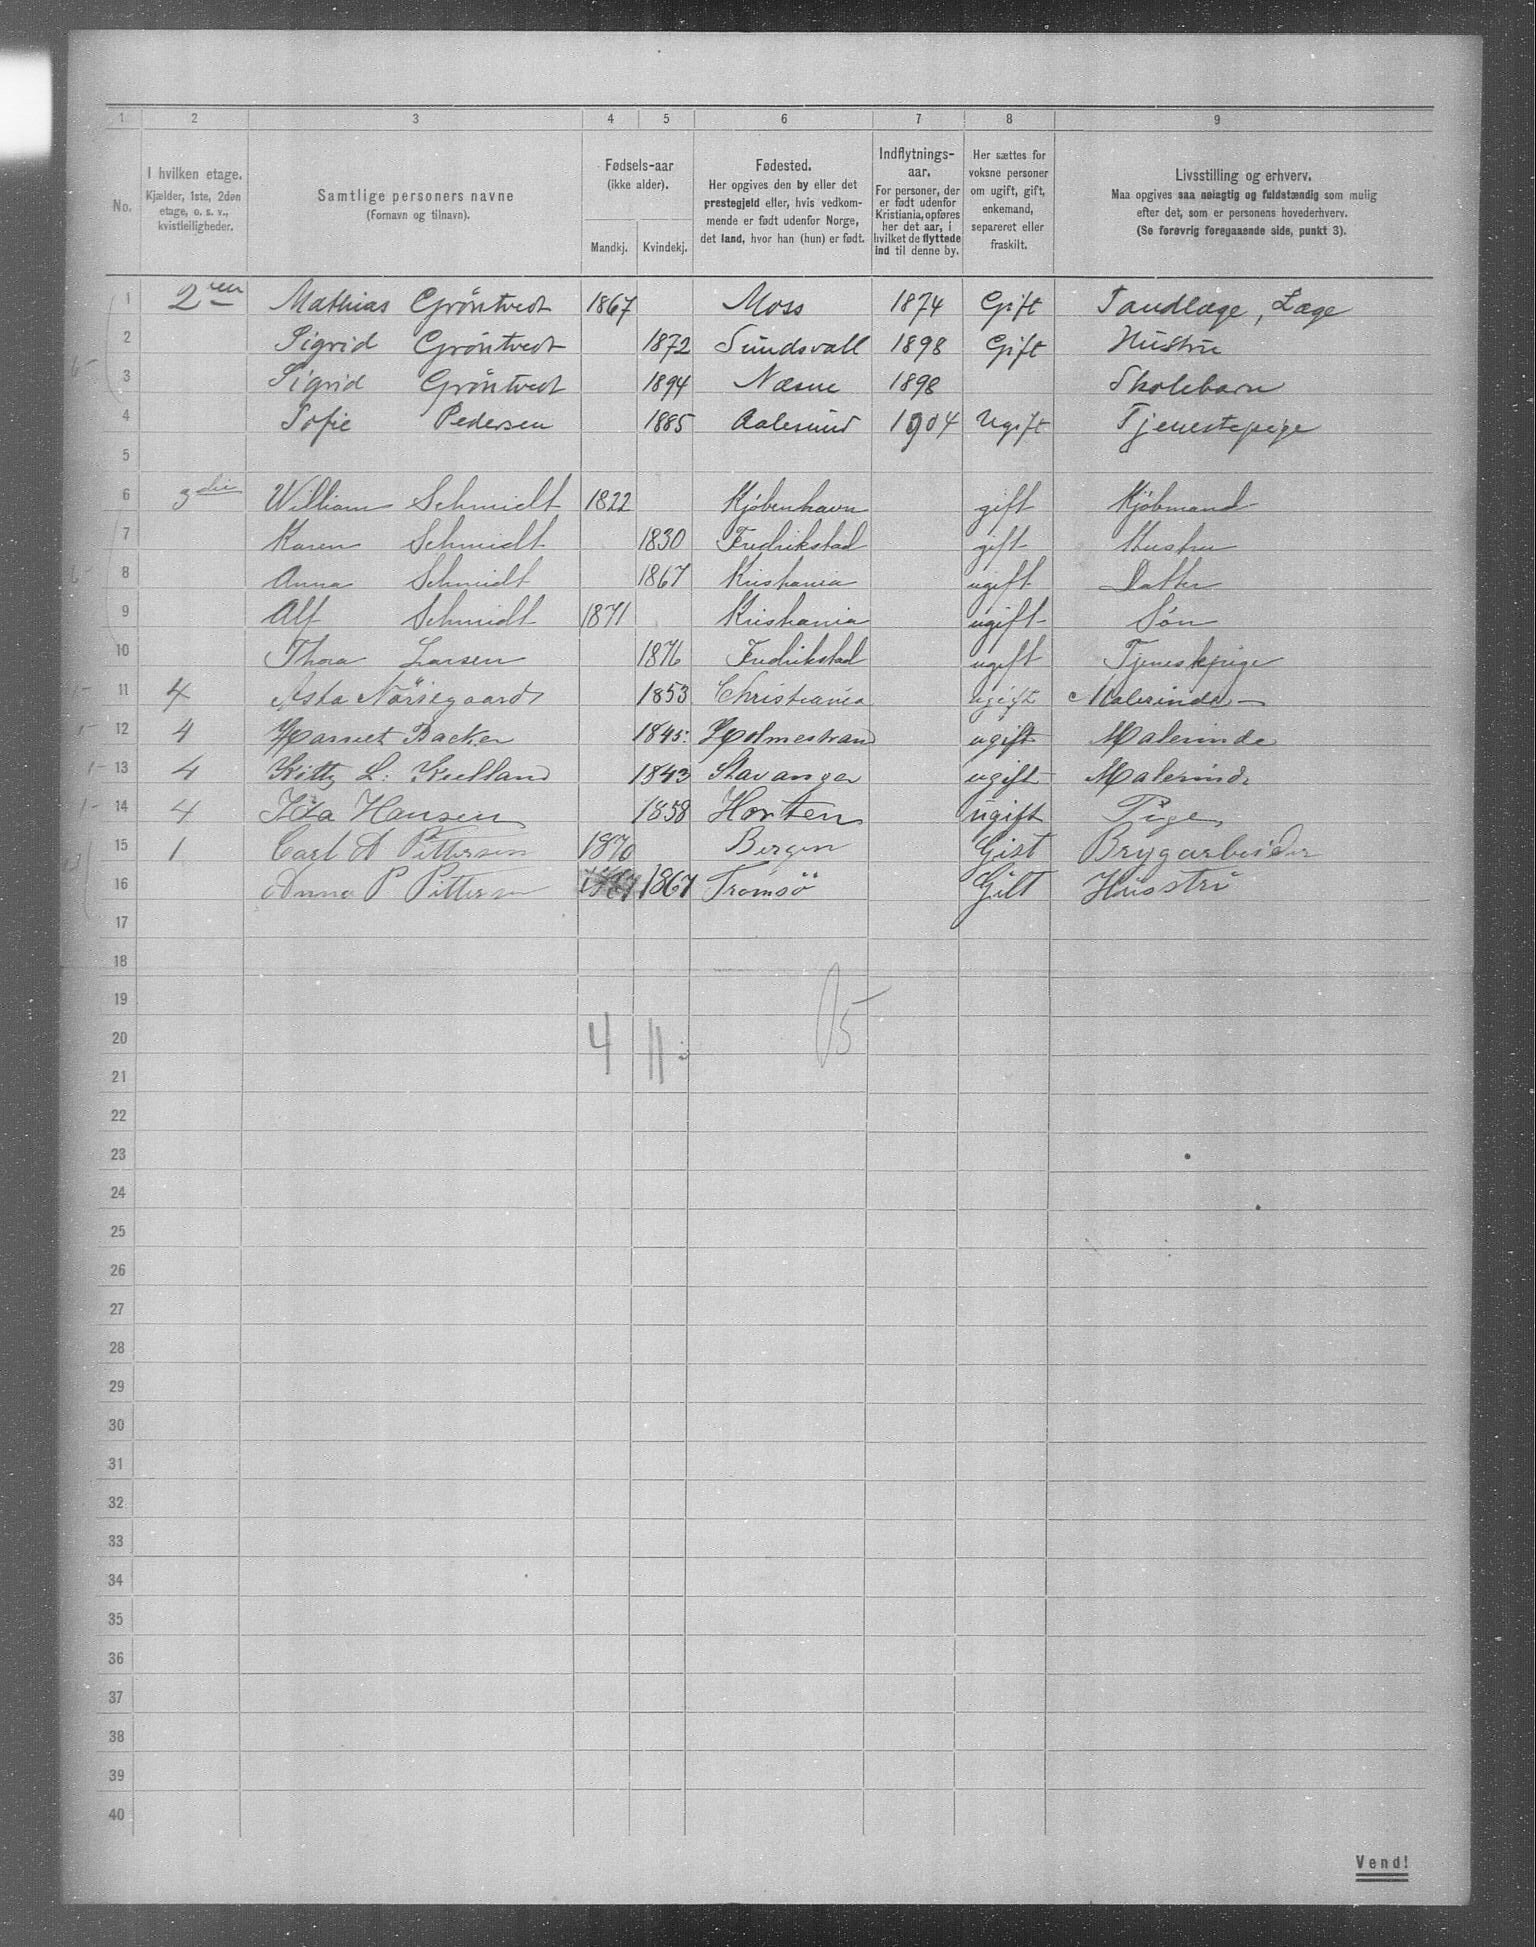 1 2 3 4 5 6 7 8 9
No.
I hvilken etage.
Kjælder, 1ste, 2den
etage, o. s. v.,
kvistleiligheder.
Samtlige personers navne
(Fornavn og tilnavn).
Fødsels-aar
(ikke alder).
Mandkj. Kvindekj.
Fødested.
Her opgives den by eller det
prestegjeld eller, hvis vedkom-
mende er født udenfor Norge,
det land, hvor han (hun) er født.
Indflytnings-
aar.
For personer, der
er født udenfor
Kristiania, opføres
her det aar, i
hvilket de flyttede
ind til denne by.
Her sættes for
voksne personer
om ugift, gift,
enkemand,
separeret eller
fraskilt.
Livsstilling og erhverv.
Maa opgives saa nøiagtig og fuldstændig som mulig
efter det, som er personens hovederhverv.
(Se forøvrig foregaaende side, punkt 3).
1 2den Mathias Gröntvedt 1867 Moss 1874 Gift Tandlæge, Læge
2 Sigrid Gröntvedt 1872 Sundsvall 1898 Gift Hustru
3 Sigrid Gröntvedt 1894 Næsne 1898 Skolebarn
4 Sofie Pedersen 1885 Aalesund 1904 Ugift Tjenestepige
5
6 3die William Schmidt 1822 Kjøbenhavn gift Kjøbmand
7 Karen Schmidt 1830 Fredrikstad gift Hustru
8 Anna Schmidt 1867 Kristiania ugift Datter
9 Alf Schmidt 1871 Kristiania ugift Søn
10 Thora Larsen 1876 Fredrikstad ugift Tjenestepige
11 4 Asta Nörregaard 1853 Christiania ugift Malerinde
12 4 Harriet Backer 1845. Holmestrand ugift Malerinde
13 4 Kitty L. Kielland 1843 Stavanger ugift Malerinde
14 4 Ida Hansen 1858 Horten ugift Pige
15 1 Carl A Pettersen 1870 Bergen Gift Brygarbeider
16 Anna P Pettersen 1867 Tromsö Gift Husstru
17
18
19
20 4 11 15
21
22
23
24
25
26
27
28
29
30
31
32
33
34
35
36
37
38
39
40
Vend!